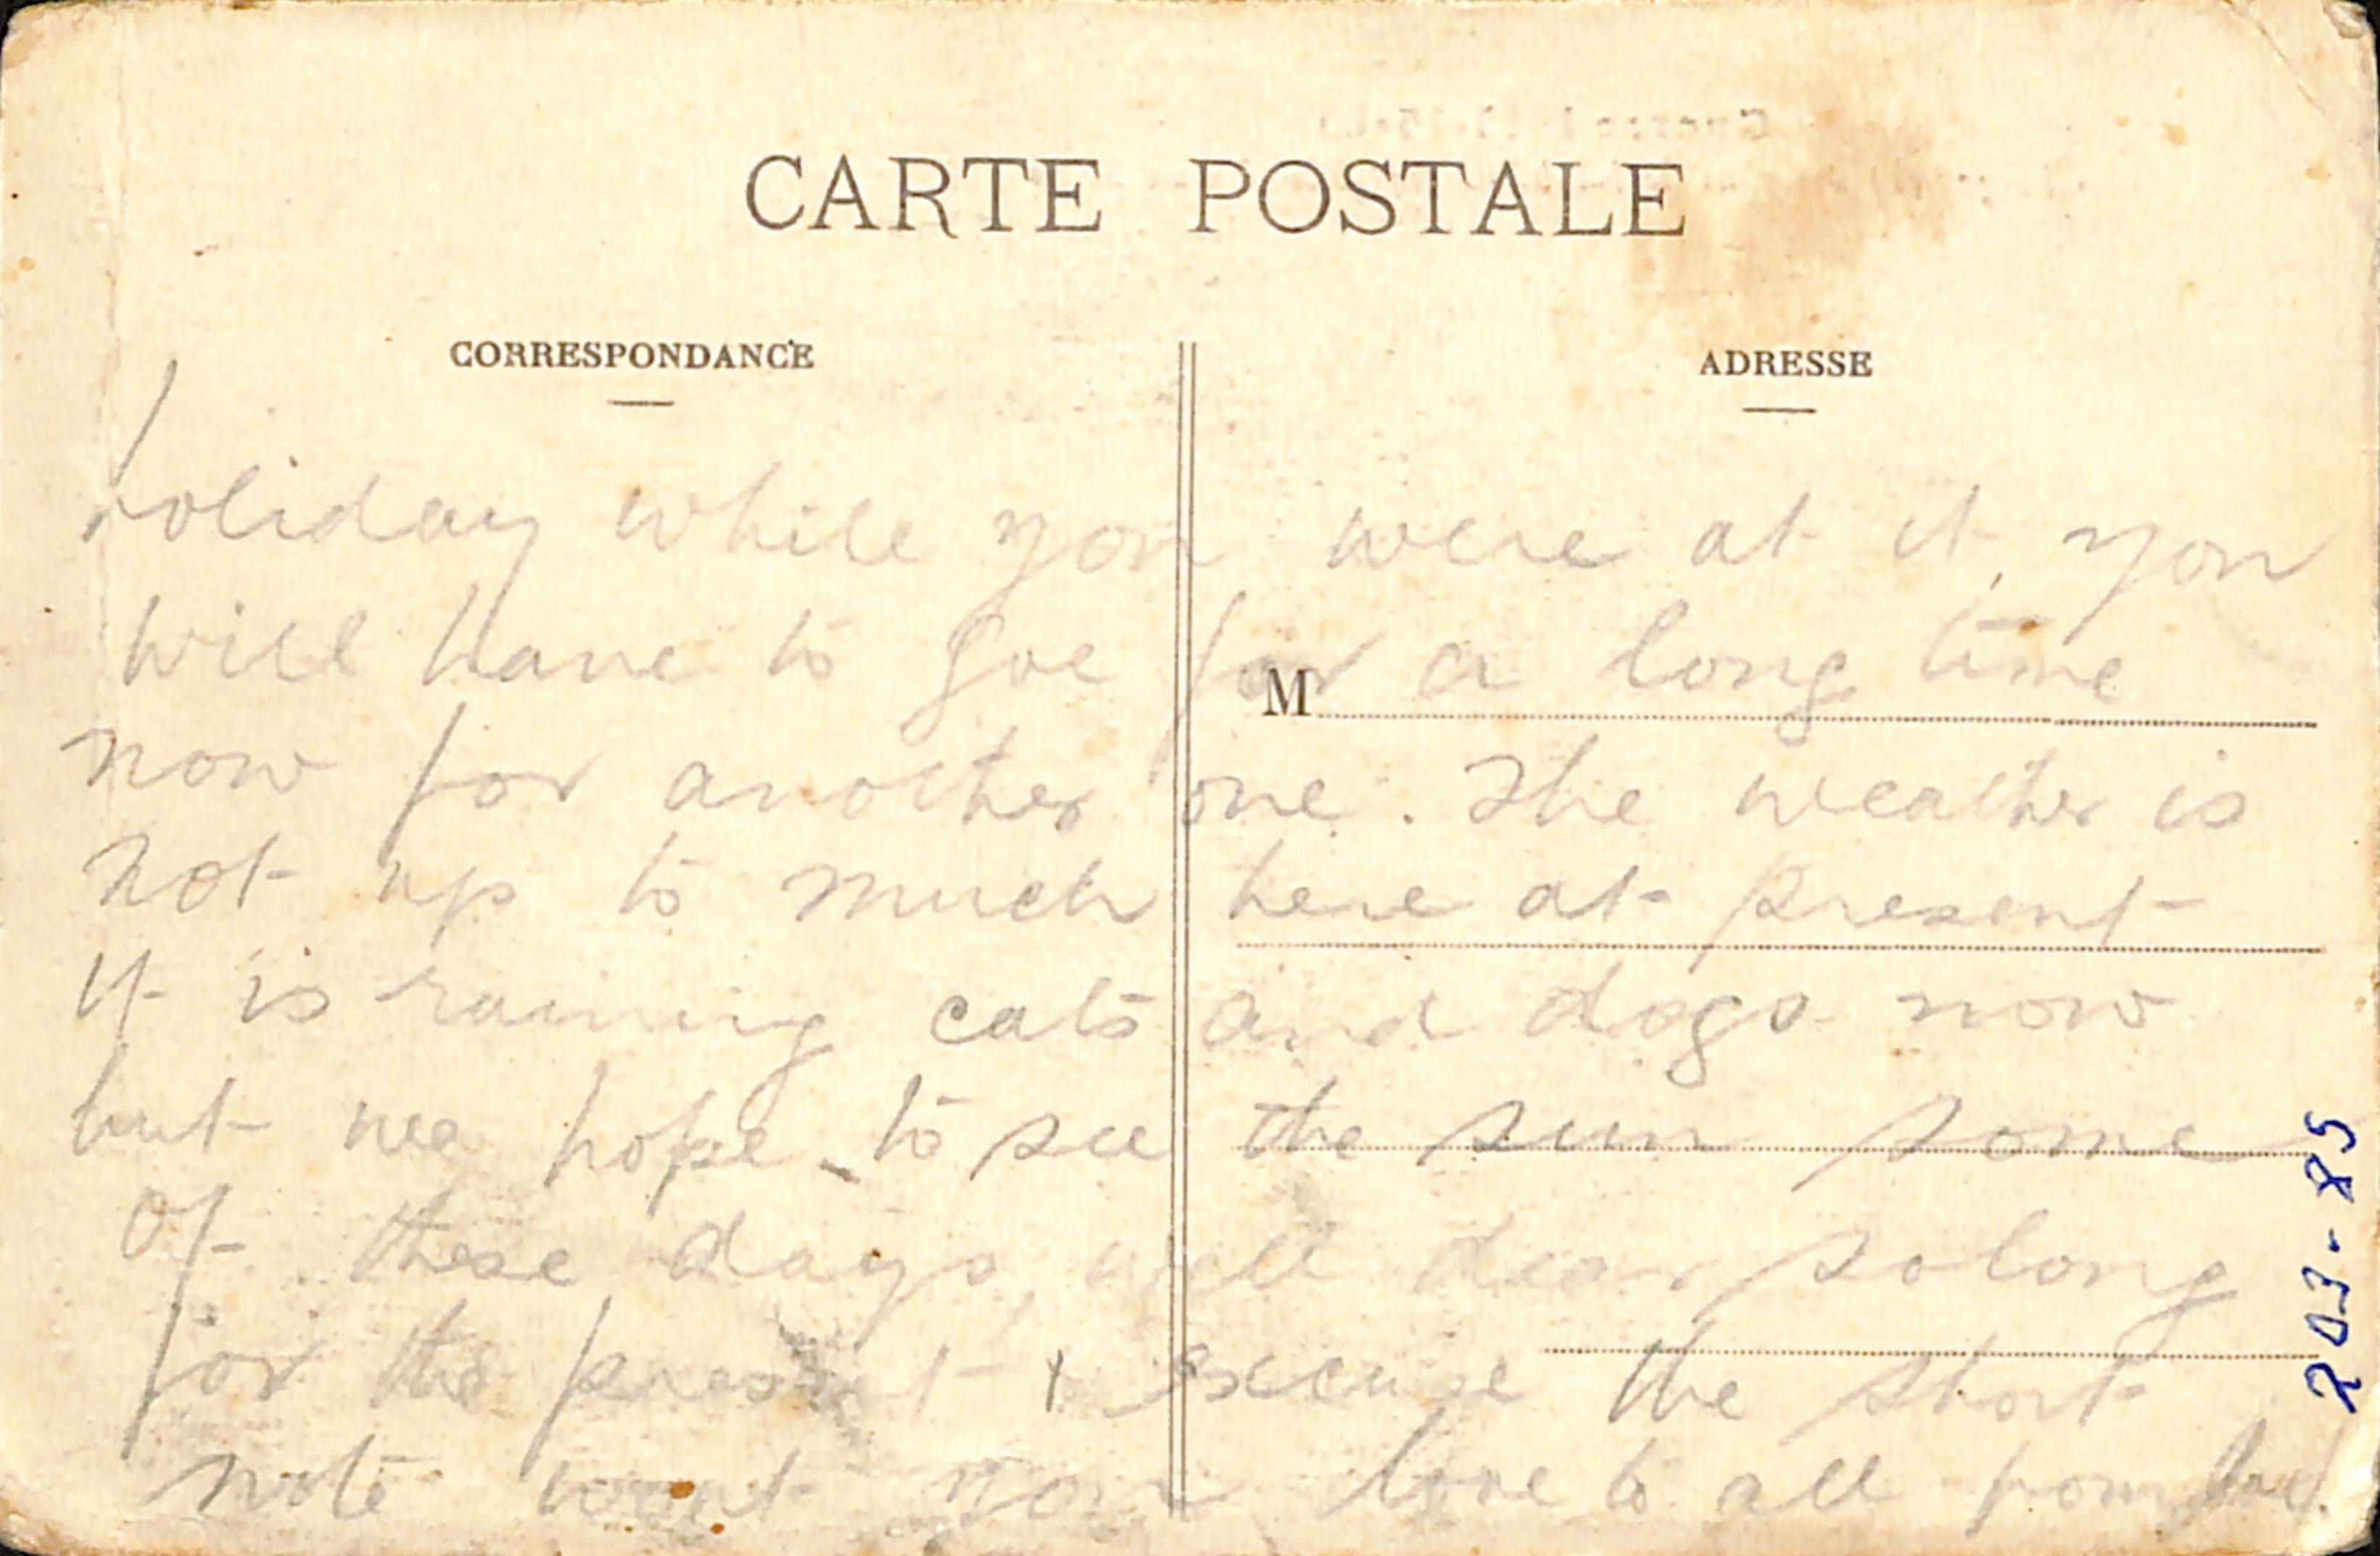 CARTE POSTALE
CORRESPONDANCE
ADRESSE
holiday while you were at it, you
will have to goe for a long time
M
now for another one. The weather is
not up to much here at present
It is raining cats and dogs now
but we hope to see the sun some
of these days, well dear so long
for the present & excuse the short
note wont you love to all from
203-85